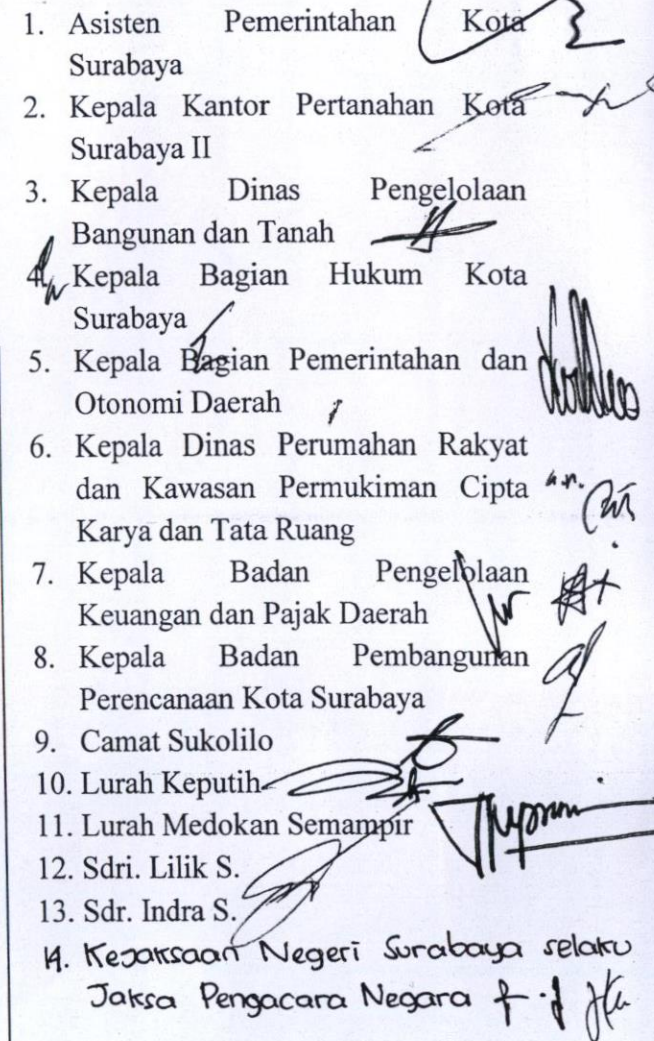 1. Asisten Pemerintahan Kota
Surabaya
2. Kepala Kantor Pertanahan Kota
Surabaya II
3. Kepala Dinas Pengelolaan
Bangunan dan Tanah
4. Kepala Bagian Hukum Kota
Surabaya
5. Kepala Bagian Pemerintahan dan
Otonomi Daerah
6. Kepala Dinas Perumahan Rakyat
dan Kawasan Permukiman Cipta
Karya dan Tata Ruang
a.n.
7. Kepala Badan Pengelolaan
Keuangan dan Pajak Daerah
8. Kepala Badan Pembangunan
Perencanaan Kota Surabaya
9. Camat Sukolilo
10. Lurah Keputih
11. Lurah Medokan Semampir
12. Sdri. Lilik S.
13. Sdr. Indra S.
14. Kejaksaan Negeri Surabaya selaku
Jaksa Pengacara Negara